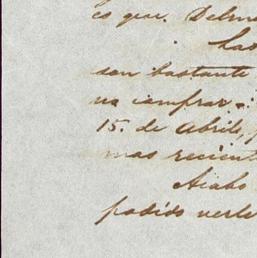 es que. Delm
has
son bastante
no comprar.
15. de Abril,
mas recient
Acabo
podido verle